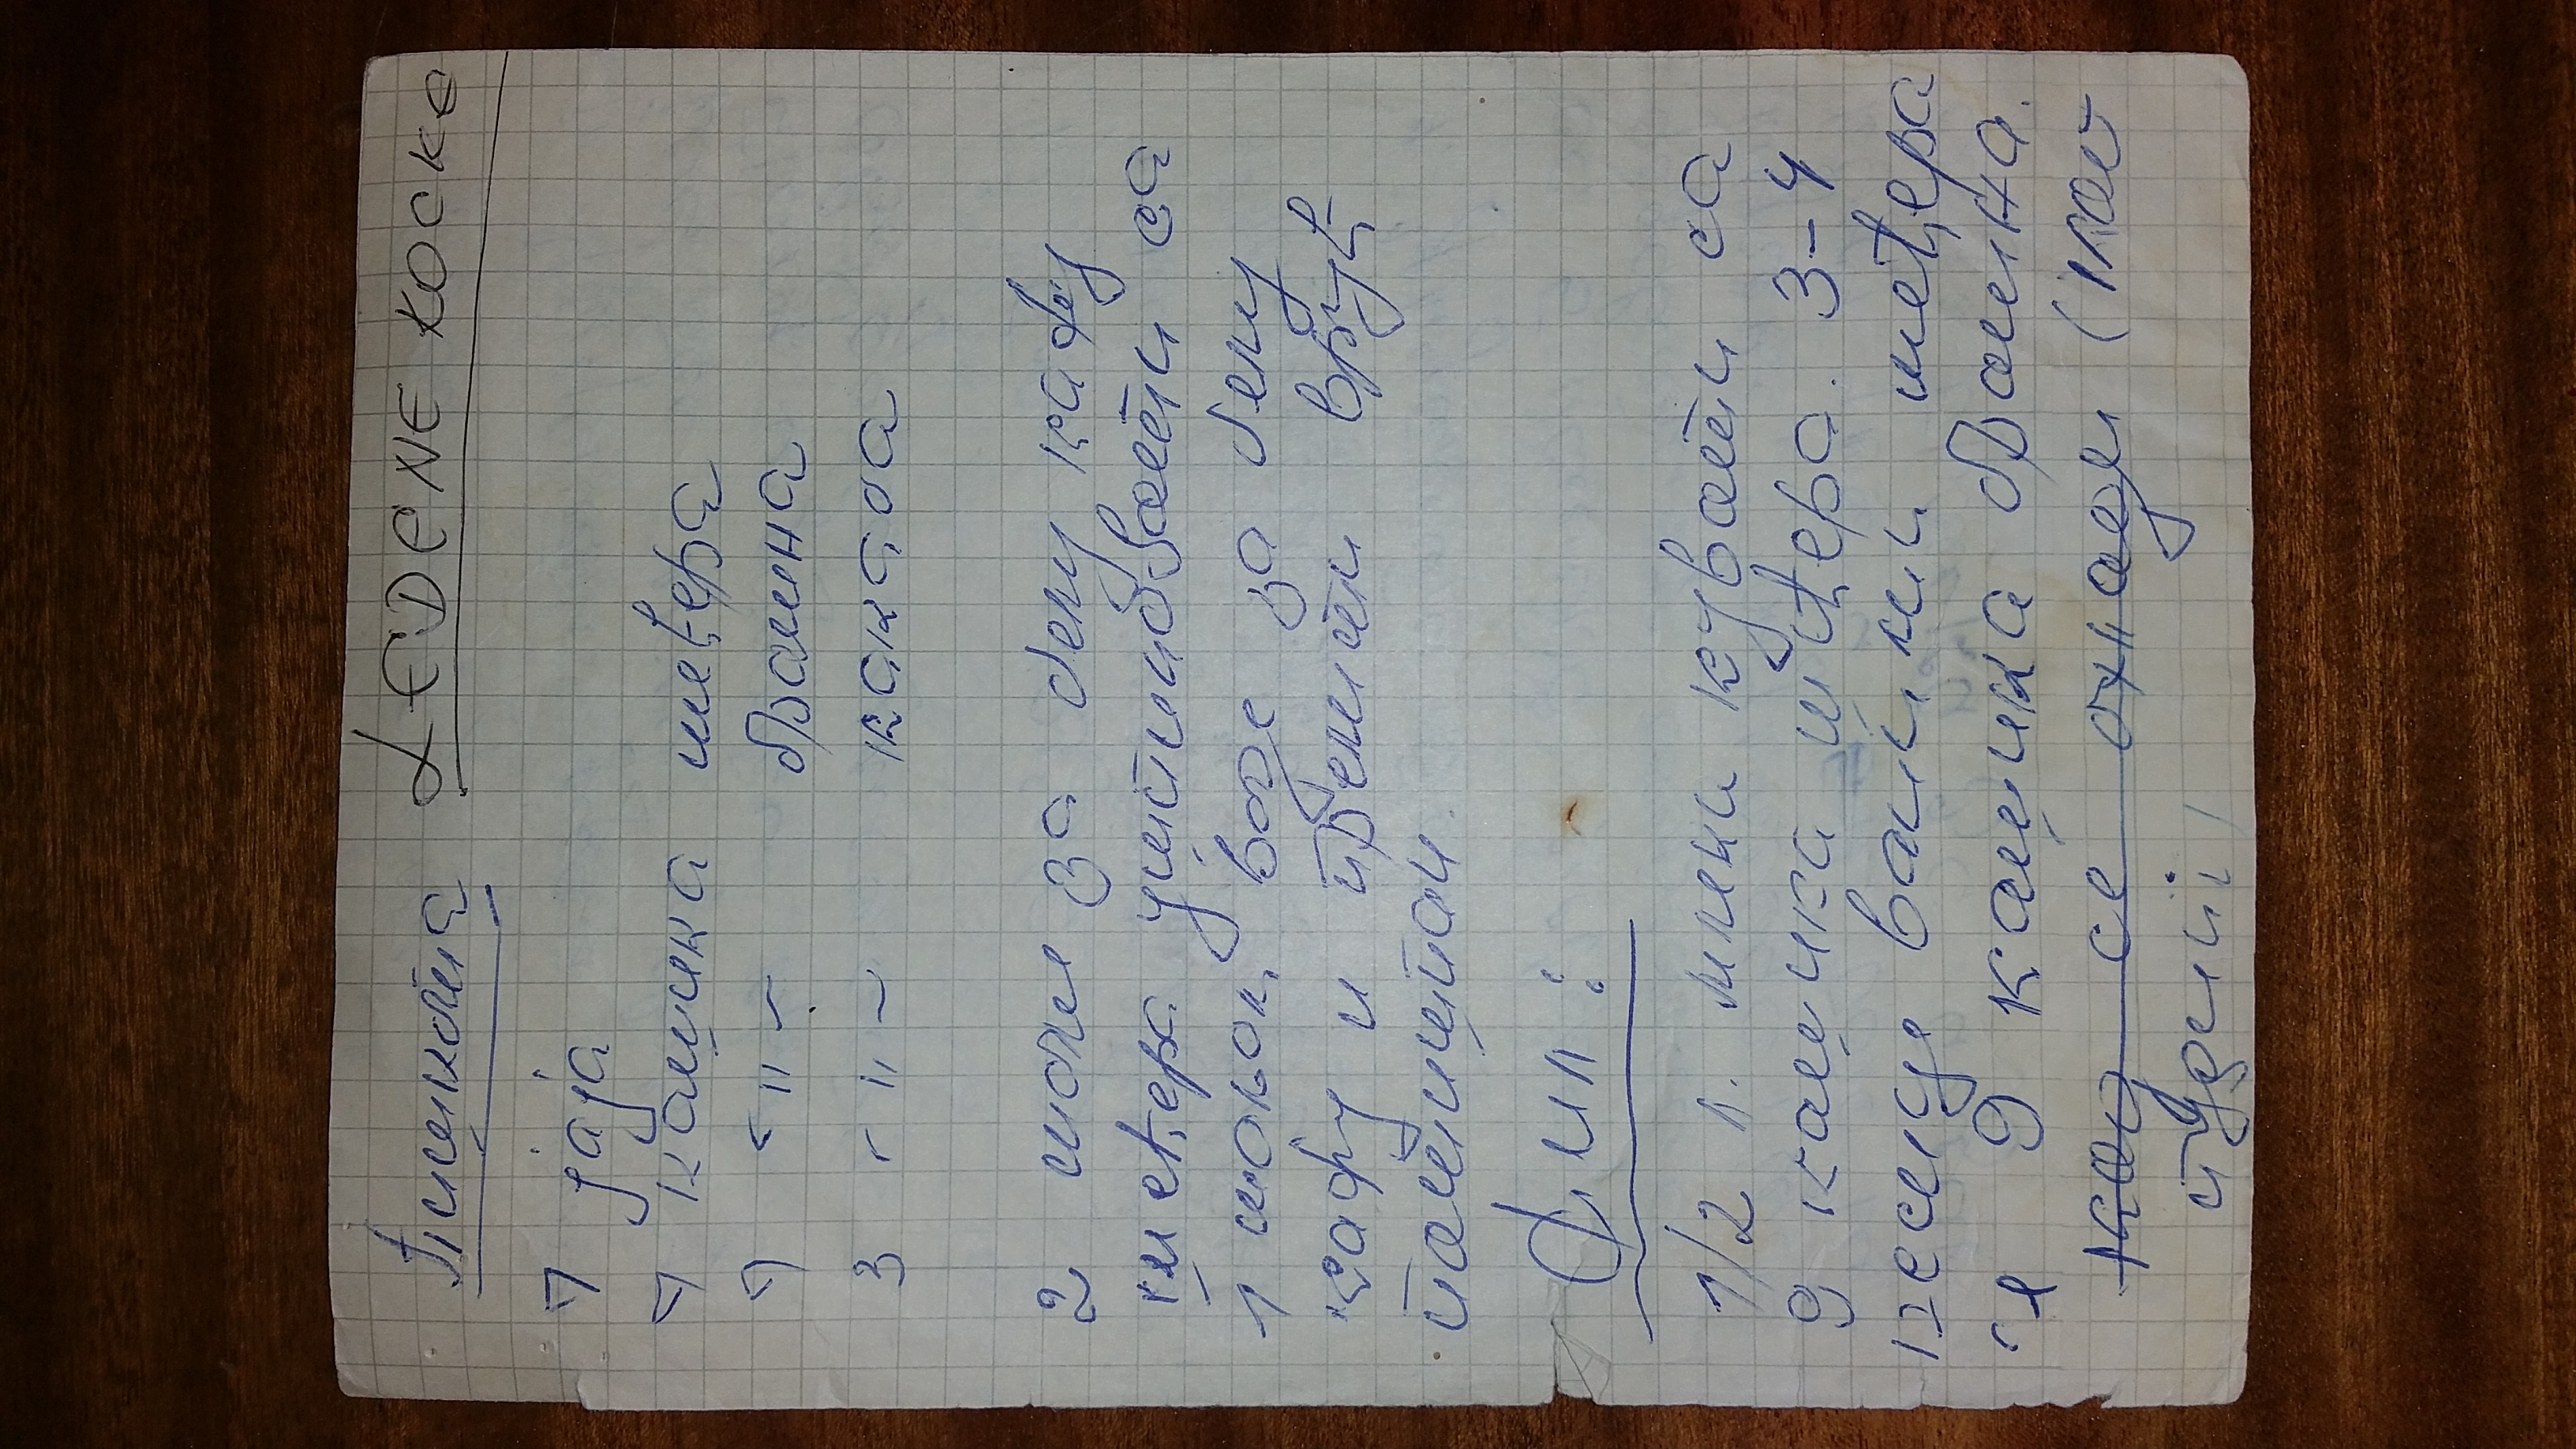 Пишкота LEDENE KOCKE
7 јаја
7 кашика шећера
7 -"- брашна
3 -"- какаоа
2 шоље за белу кафу
шећера ушпиновати са
1 шољом воде за белу
кафу и прелити врућ
патишпан.
Фил:
1/2 л. млека кувати са
9 кашика шећера. 3-4
кесице ванили шећера
и 9 кашика брашна.
кад се охлади (као
пудинг)